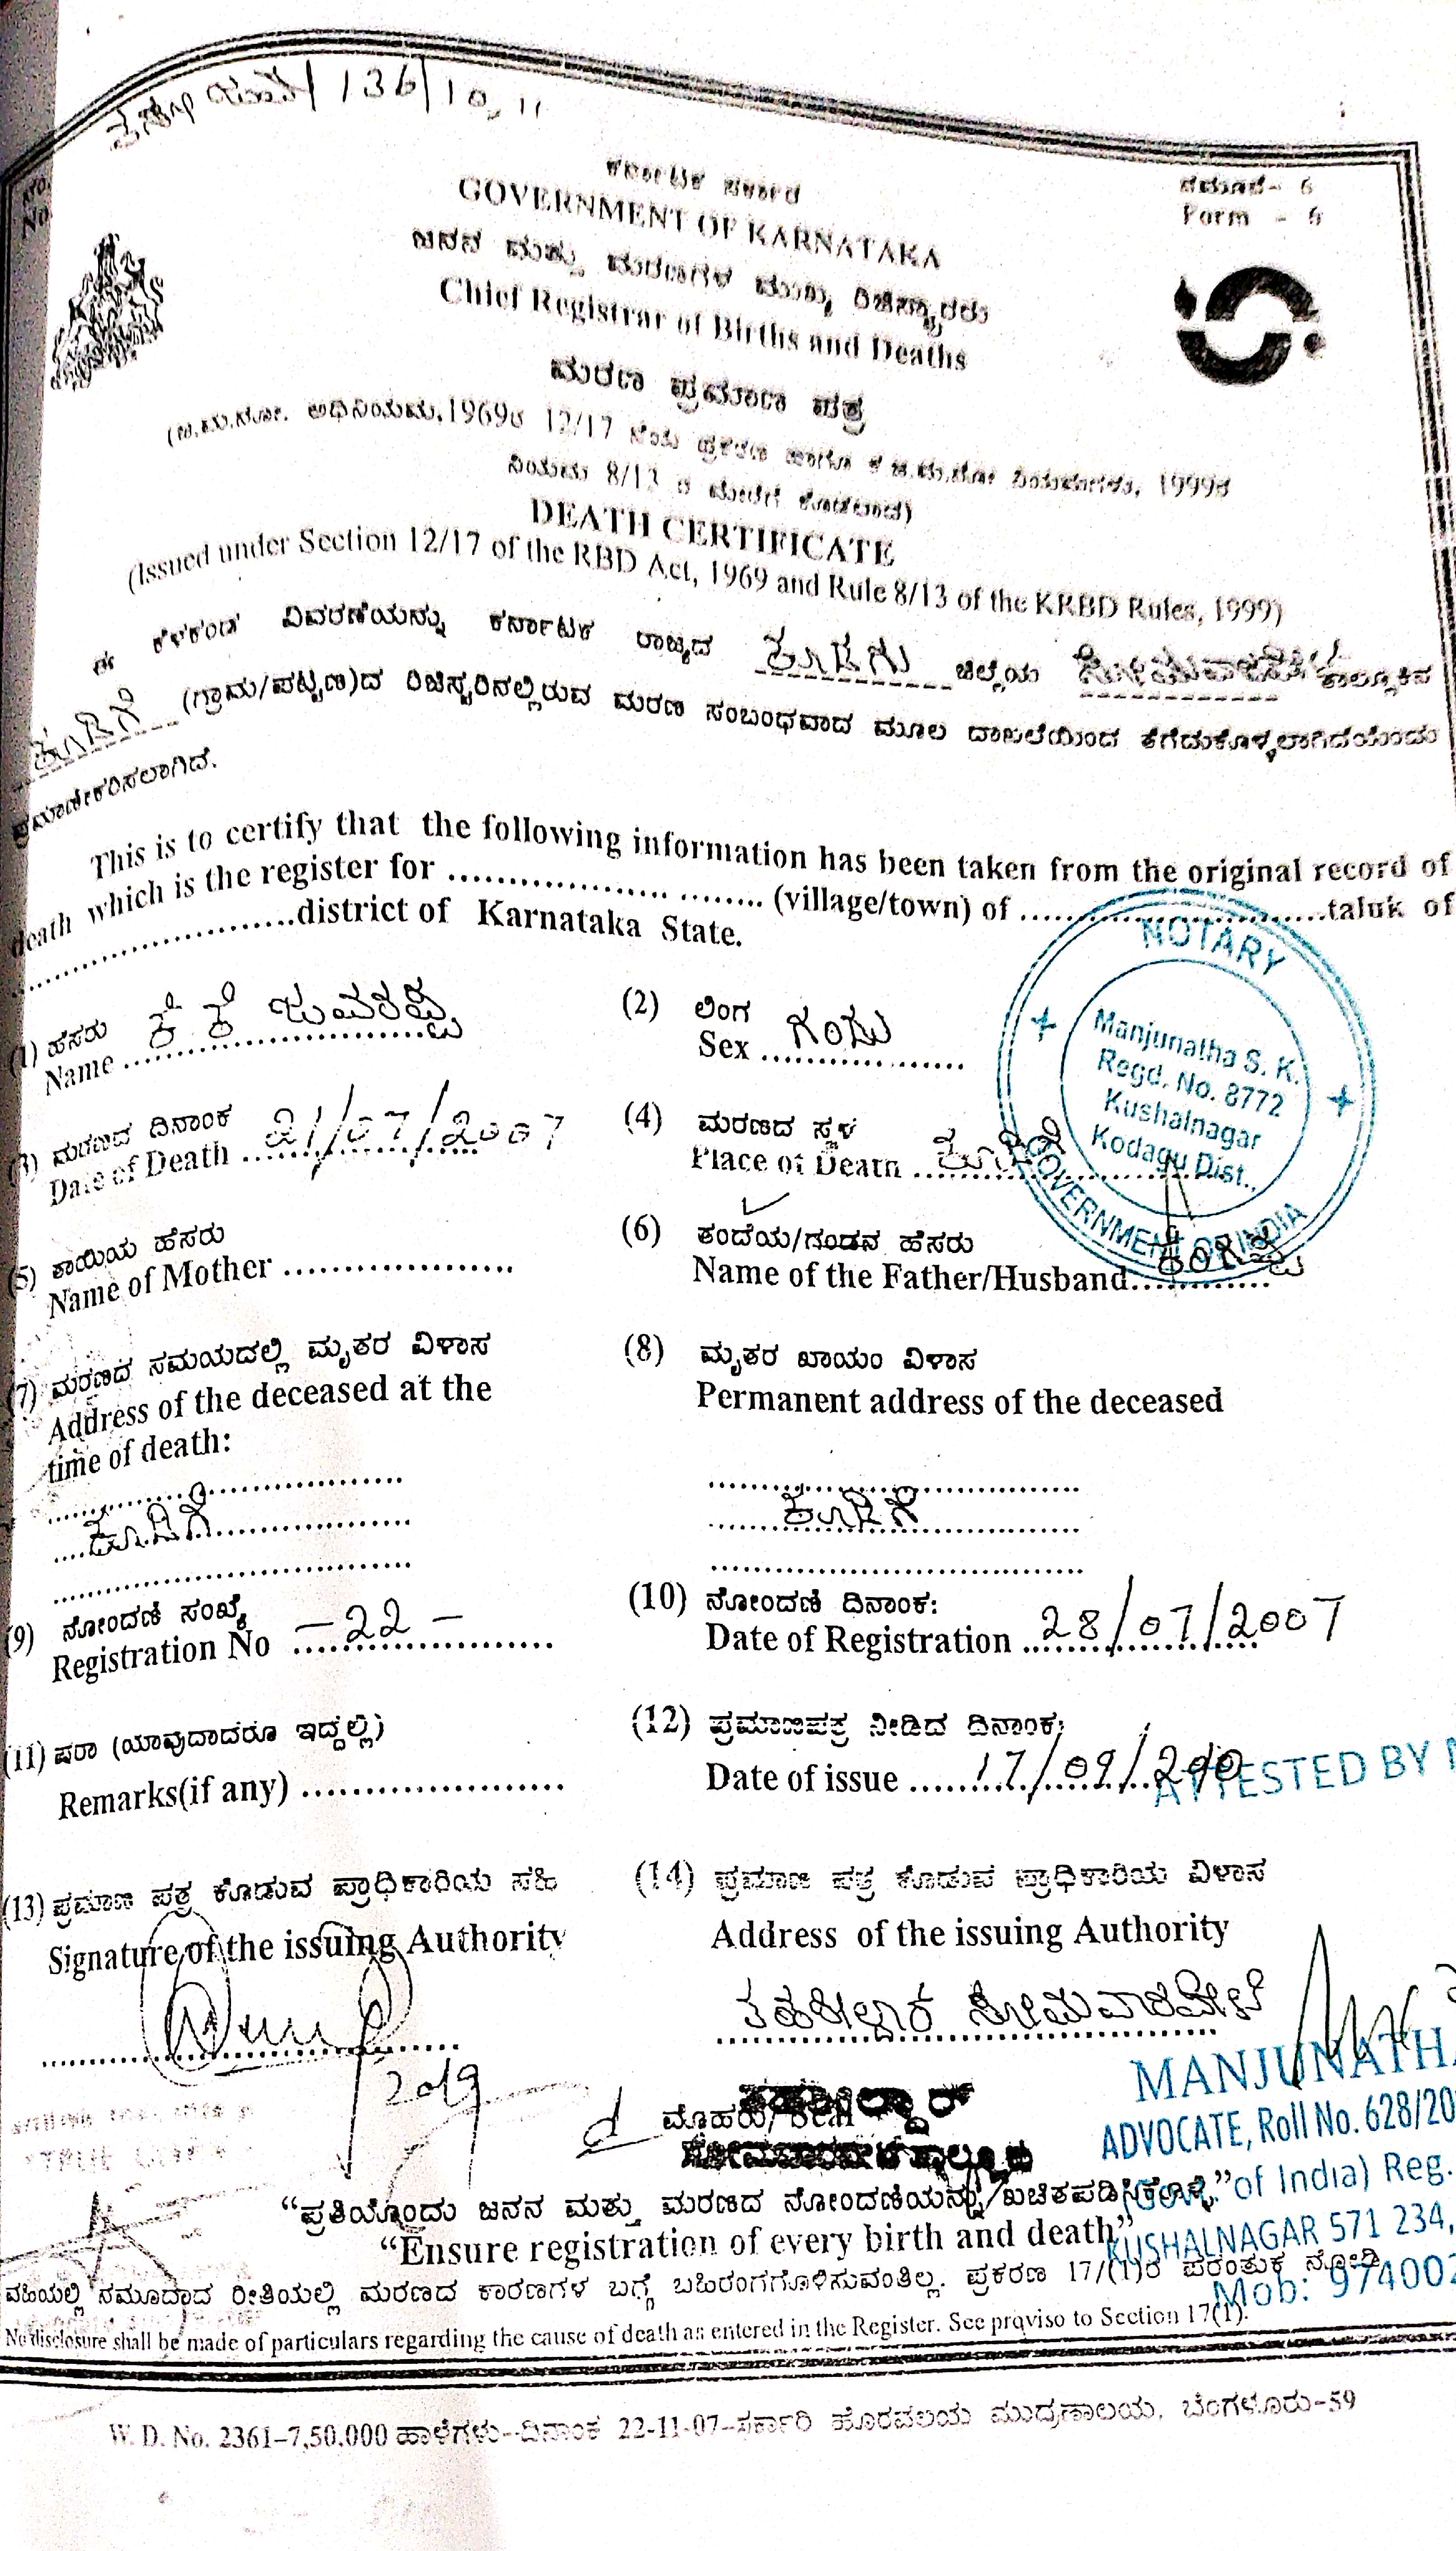 /136/10,11
No.
ಕರ್ನಾಟಕ ಸರ್ಕಾರ
GOVERNMENT OF KARNATAKA
ನಮೂನೆ- 6
Form - 6
ಜನನ ಮತ್ತು ಮರಣಗಳ ಮುಖ್ಯ ರಿಜಿಸ್ಟ್ರಾರರು
Chief Registrar of Births and Deaths
ಮರಣ ಪ್ರಮಾಣ ಪತ್ರ
(ಜ.ಮ.ನೋ. ಅಧಿನಿಯಮ,1969ರ 12/17 ನೇಯ ಪ್ರಕರಣ ಹಾಗೂ ಕ.ಜ.ಮ.ನೋ ನಿಯಮಗಳು, 1999ರ
ನಿಯಮ 8/13 ರ ಮೇರೆಗೆ ಕೊಡಲಾದ)
DEATH CERTIFICATE
(Issued under Section 12/17 of the RBD Act, 1969 and Rule 8/13 of the KRBD Rules, 1999)
ಈ ಕೆಳಕಂಡ ವಿವರಣೆಯನ್ನು ಕರ್ನಾಟಕ ರಾಜ್ಯದ ಕೊಡಗು ಜಿಲ್ಲೆಯ ಸೋಮವಾರಪೇಟೆ ತಾಲ್ಲೂಕಿನ
ಕೂಡಿಗೆ (ಗ್ರಾಮ/ಪಟ್ಟಣ)ದ ರಿಜಿಸ್ಟರಿನಲ್ಲಿರುವ ಮರಣ ಸಂಬಂಧವಾದ ಮೂಲ ದಾಖಲೆಯಿಂದ ತೆಗೆದುಕೊಳ್ಳಲಾಗಿದೆಯೆಂದು
ಪ್ರಮಾಣೀಕರಿಸಲಾಗಿದೆ.
This is to certify that the following information has been taken from the original record of
death which is the register for .................. ........ (village/town) of ..........................taluk of
........................district of Karnataka State.
NOTARY
Manjunatha S. K.
Regd. No. 8772
Kushalnagar
Kodagu Dist.,
GOVERNMENT OF INDIA
(1) ಹೆಸರು ಕೆ ಕೆ
Name
(2) ಲಿಂಗ ಗಂಡು
Sex
(3) ಮರಣದ ದಿನಾಂಕ 21/07/2007
Date of Death
(4) ಮರಣದ ಸ್ಥಳ
Place of Death ಕೂಡಿಗೆ
(5) ತಾಯಿಯ ಹೆಸರು
Name of Mother
(6) ತಂದೆಯ/ಗಂಡನ ಹೆಸರು
Name of the Father/Husband
(7) ಮರಣದ ಸಮಯದಲ್ಲಿ ಮೃತರ ವಿಳಾಸ
Address of the deceased at the
time of death:
ಕೂಡಿಗೆ
(8) ಮೃತರ ಖಾಯಂ ವಿಳಾಸ
Permanent address of the deceased
ಕೂಡಿಗೆ
(9) ನೋಂದಣಿ ಸಂಖ್ಯೆ
Registration No - 22 -
(10) ನೋಂದಣಿ ದಿನಾಂಕ:
Date of Registration 28/07/2007
(11) ಷರಾ (ಯಾವುದಾದರೂ ಇದ್ದಲ್ಲಿ)
Remarks(if any)
(12) ಪ್ರಮಾಣಪತ್ರ ನೀಡಿದ ದಿನಾಂಕ:
Date of issue 17/09/2010
ATTESTED BY
(13) ಪ್ರಮಾಣ ಪತ್ರ ಕೊಡುವ ಪ್ರಾಧಿಕಾರಿಯ ಸಹಿ
Signature of the issuing Authority
(14) ಪ್ರಮಾಣ ಪತ್ರ ಕೊಡುವ ಪ್ರಾಧಿಕಾರಿಯ ವಿಳಾಸ
Address of the issuing Authority
ತಹಶೀಲ್ದಾರ ಸೋಮವಾರಪೇಟೆ
ಮೊಹರು/ Seal
ತಹಶೀಲ್ದಾರ್
ಸೋಮವಾರಪೇಟೆ ತಾಲ್ಲೂಕು
MANJUNATHA
ADVOCATE, Roll No. 628/20
of India) Reg.
KUSHALNAGAR 571 234,
Mob: 974002
“ಪ್ರತಿಯೊಂದು ಜನನ ಮತ್ತು ಮರಣದ ನೋಂದಣಿಯನ್ನು ಖಚಿತಪಡಿಸಿಕೊಳ್ಳಿ”
“Ensure registration of every birth and death”
ವಹಿಯಲ್ಲಿ ನಮೂದಾದ ರೀತಿಯಲ್ಲಿ ಮರಣದ ಕಾರಣಗಳ ಬಗ್ಗೆ ಬಹಿರಂಗಗೊಳಿಸುವಂತಿಲ್ಲ. ಪ್ರಕರಣ 17/(1)ರ ಪರಂತುಕ ನೋಡಿ
No disclosure shall be made of particulars regarding the cause of death as entered in the Register. See proviso to Section 17(1).
W. D. No. 2361–7,50,000 ಹಾಳೆಗಳು--ದಿನಾಂಕ 22-11-07--ಸರ್ಕಾರಿ ಹೊರವಲಯ ಮುದ್ರಣಾಲಯ, ಬೆಂಗಳೂರು-59